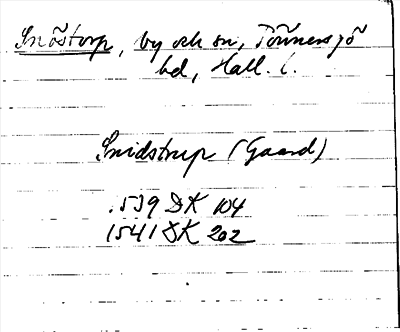 Snöstorp, by och sn, Tönnersjö
hd, Hall. l.
Snidstrup (Gaard)
1539 DK 104
1541 DK 202